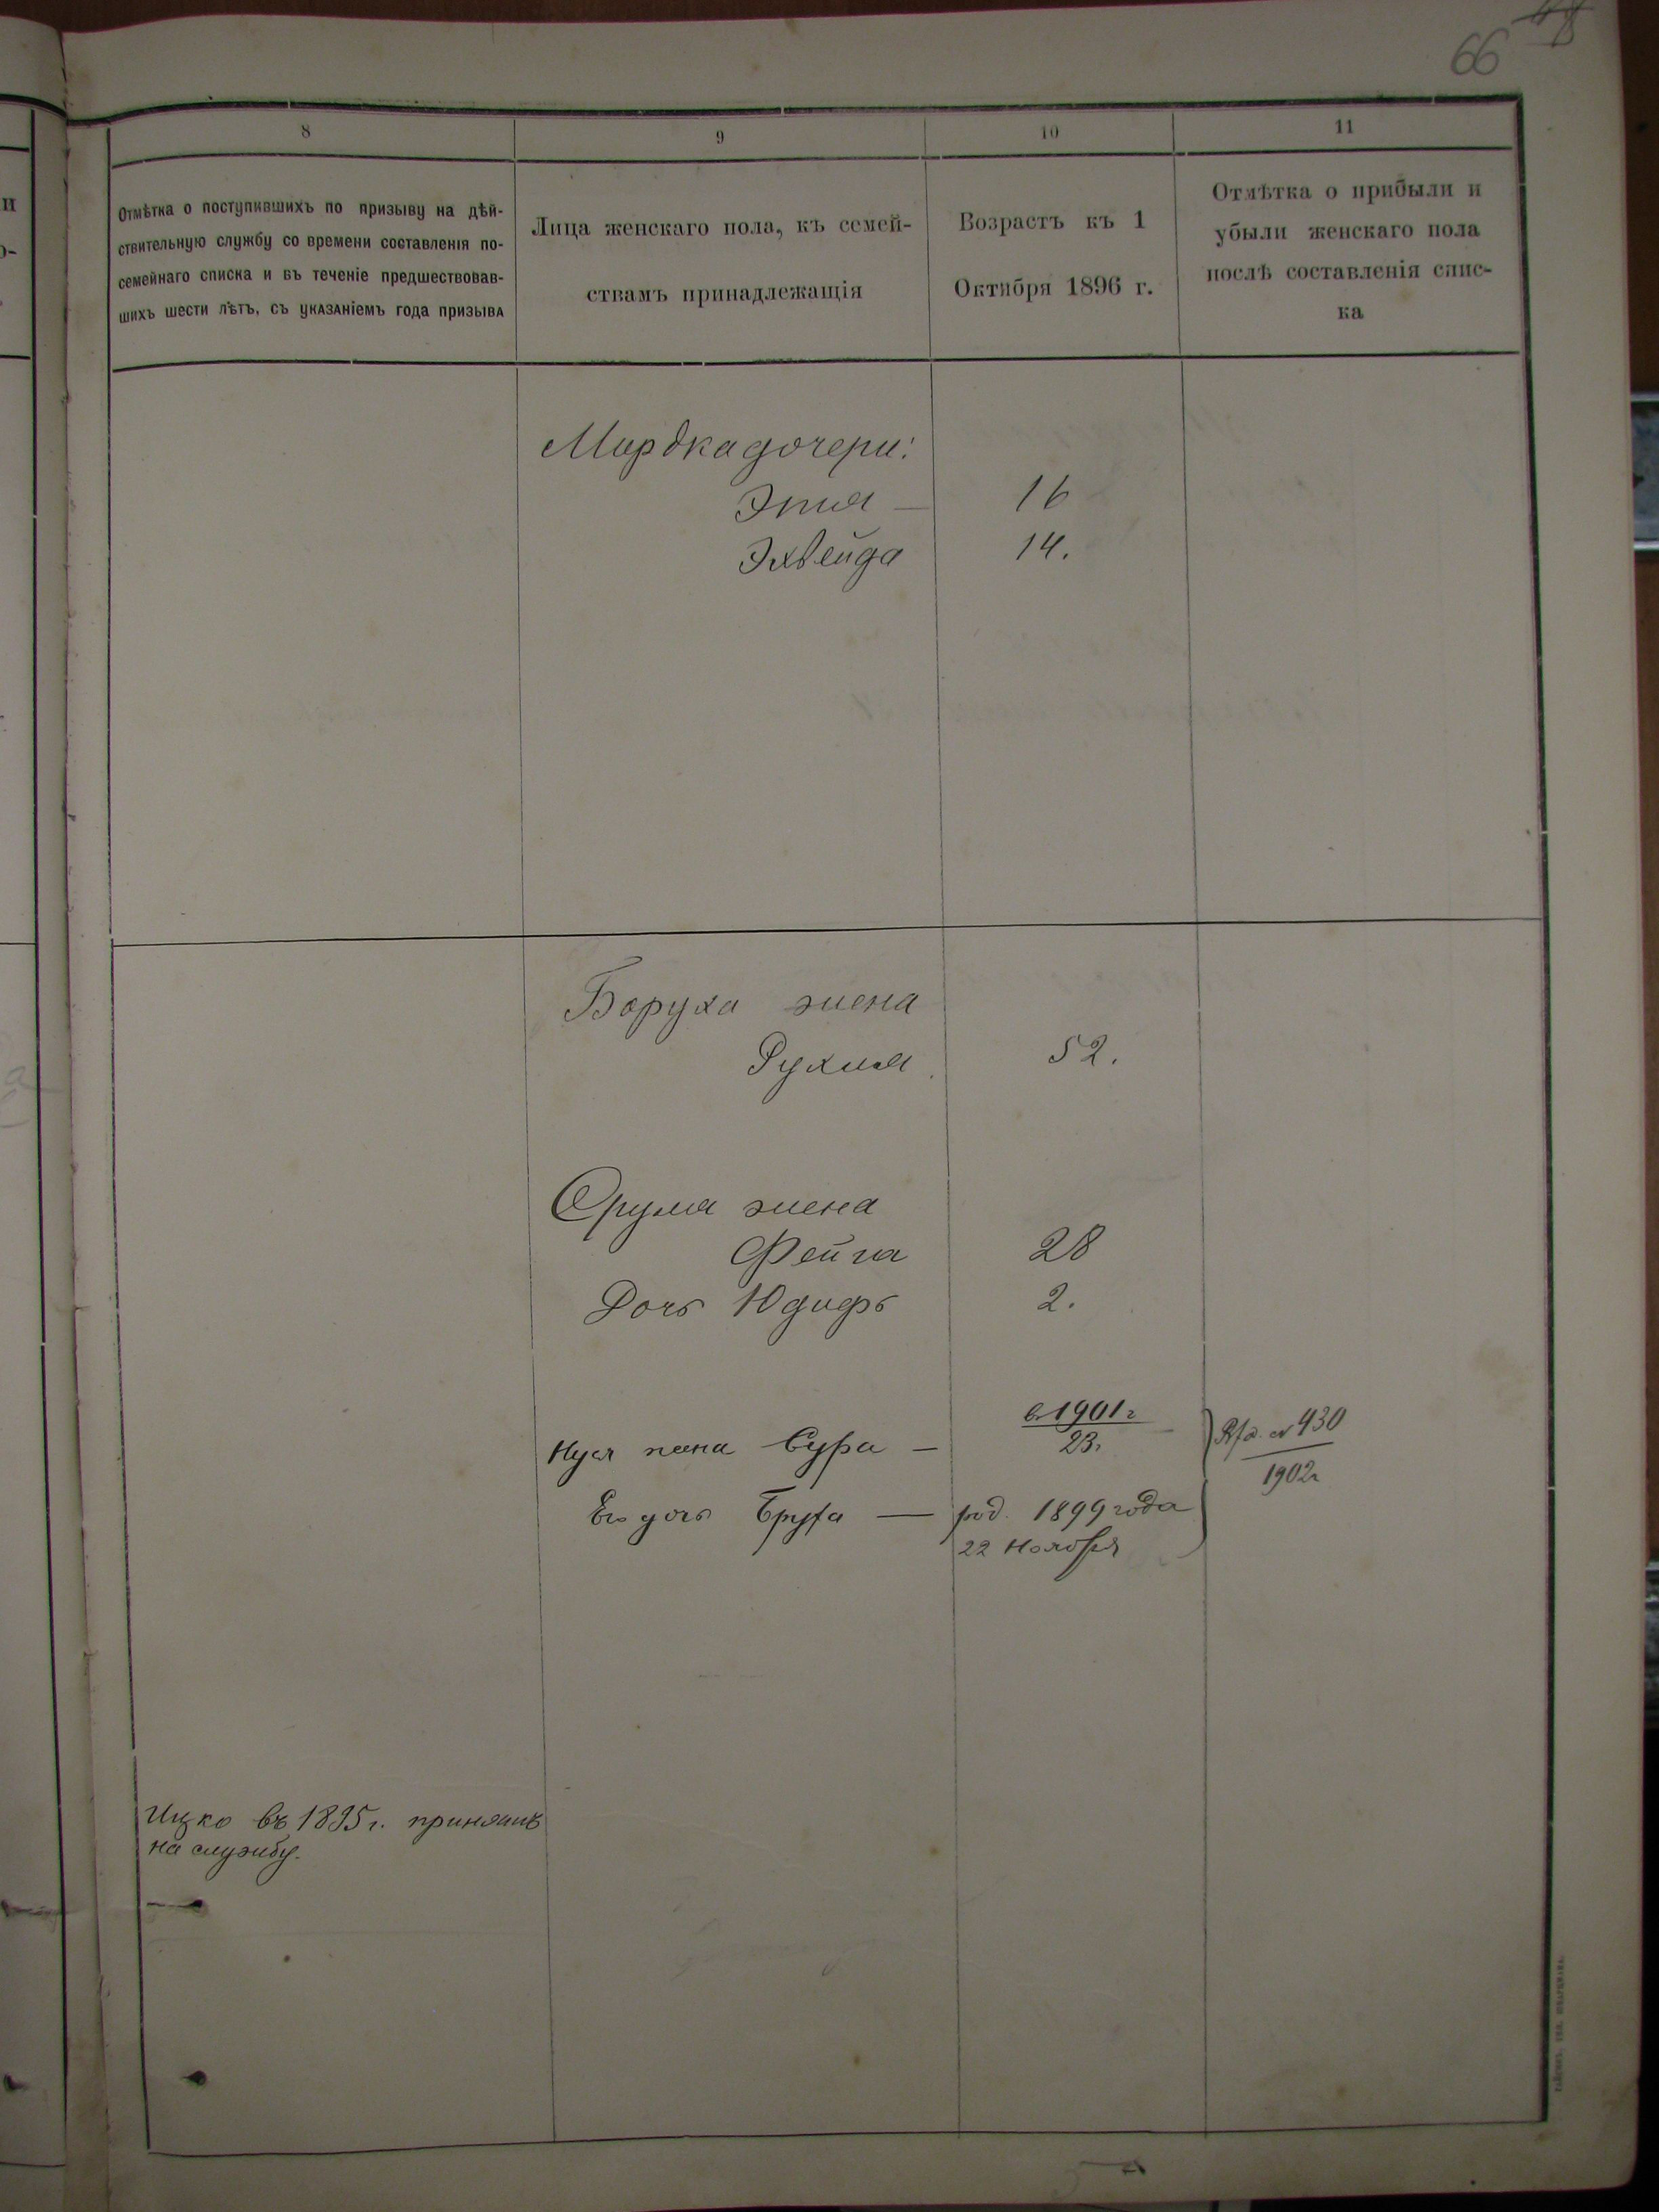 66
8
9
10
11
Отмѣтка о поступившихъ по призыву на дѣй-
ствительную службу со времени составленія по-
семейнаго списка и въ теченіе предшествовав-
шихъ шести лѣтъ, съ указаніемъ года призыва
Лица женскаго пола, къ семей-
ствамъ принадлежащія
Возрастъ къ 1
Октября 1896 г.
Отмѣтка о прибыли и
убыли женскаго пола
послѣ составленія спис-
ка
Мордка дочери:
Этя — 16
14.
Боруха жена
Рухля 52.
Срула жена
Фейга 28
Дочь Юдифь 2.
в 1901 г
Нуся жена Сура — 23.
№ 430
1902 г
Его дочь Бруха — род. 1899 года
22 Ноября
Ицко въ 1895 г. принятъ
на службу.